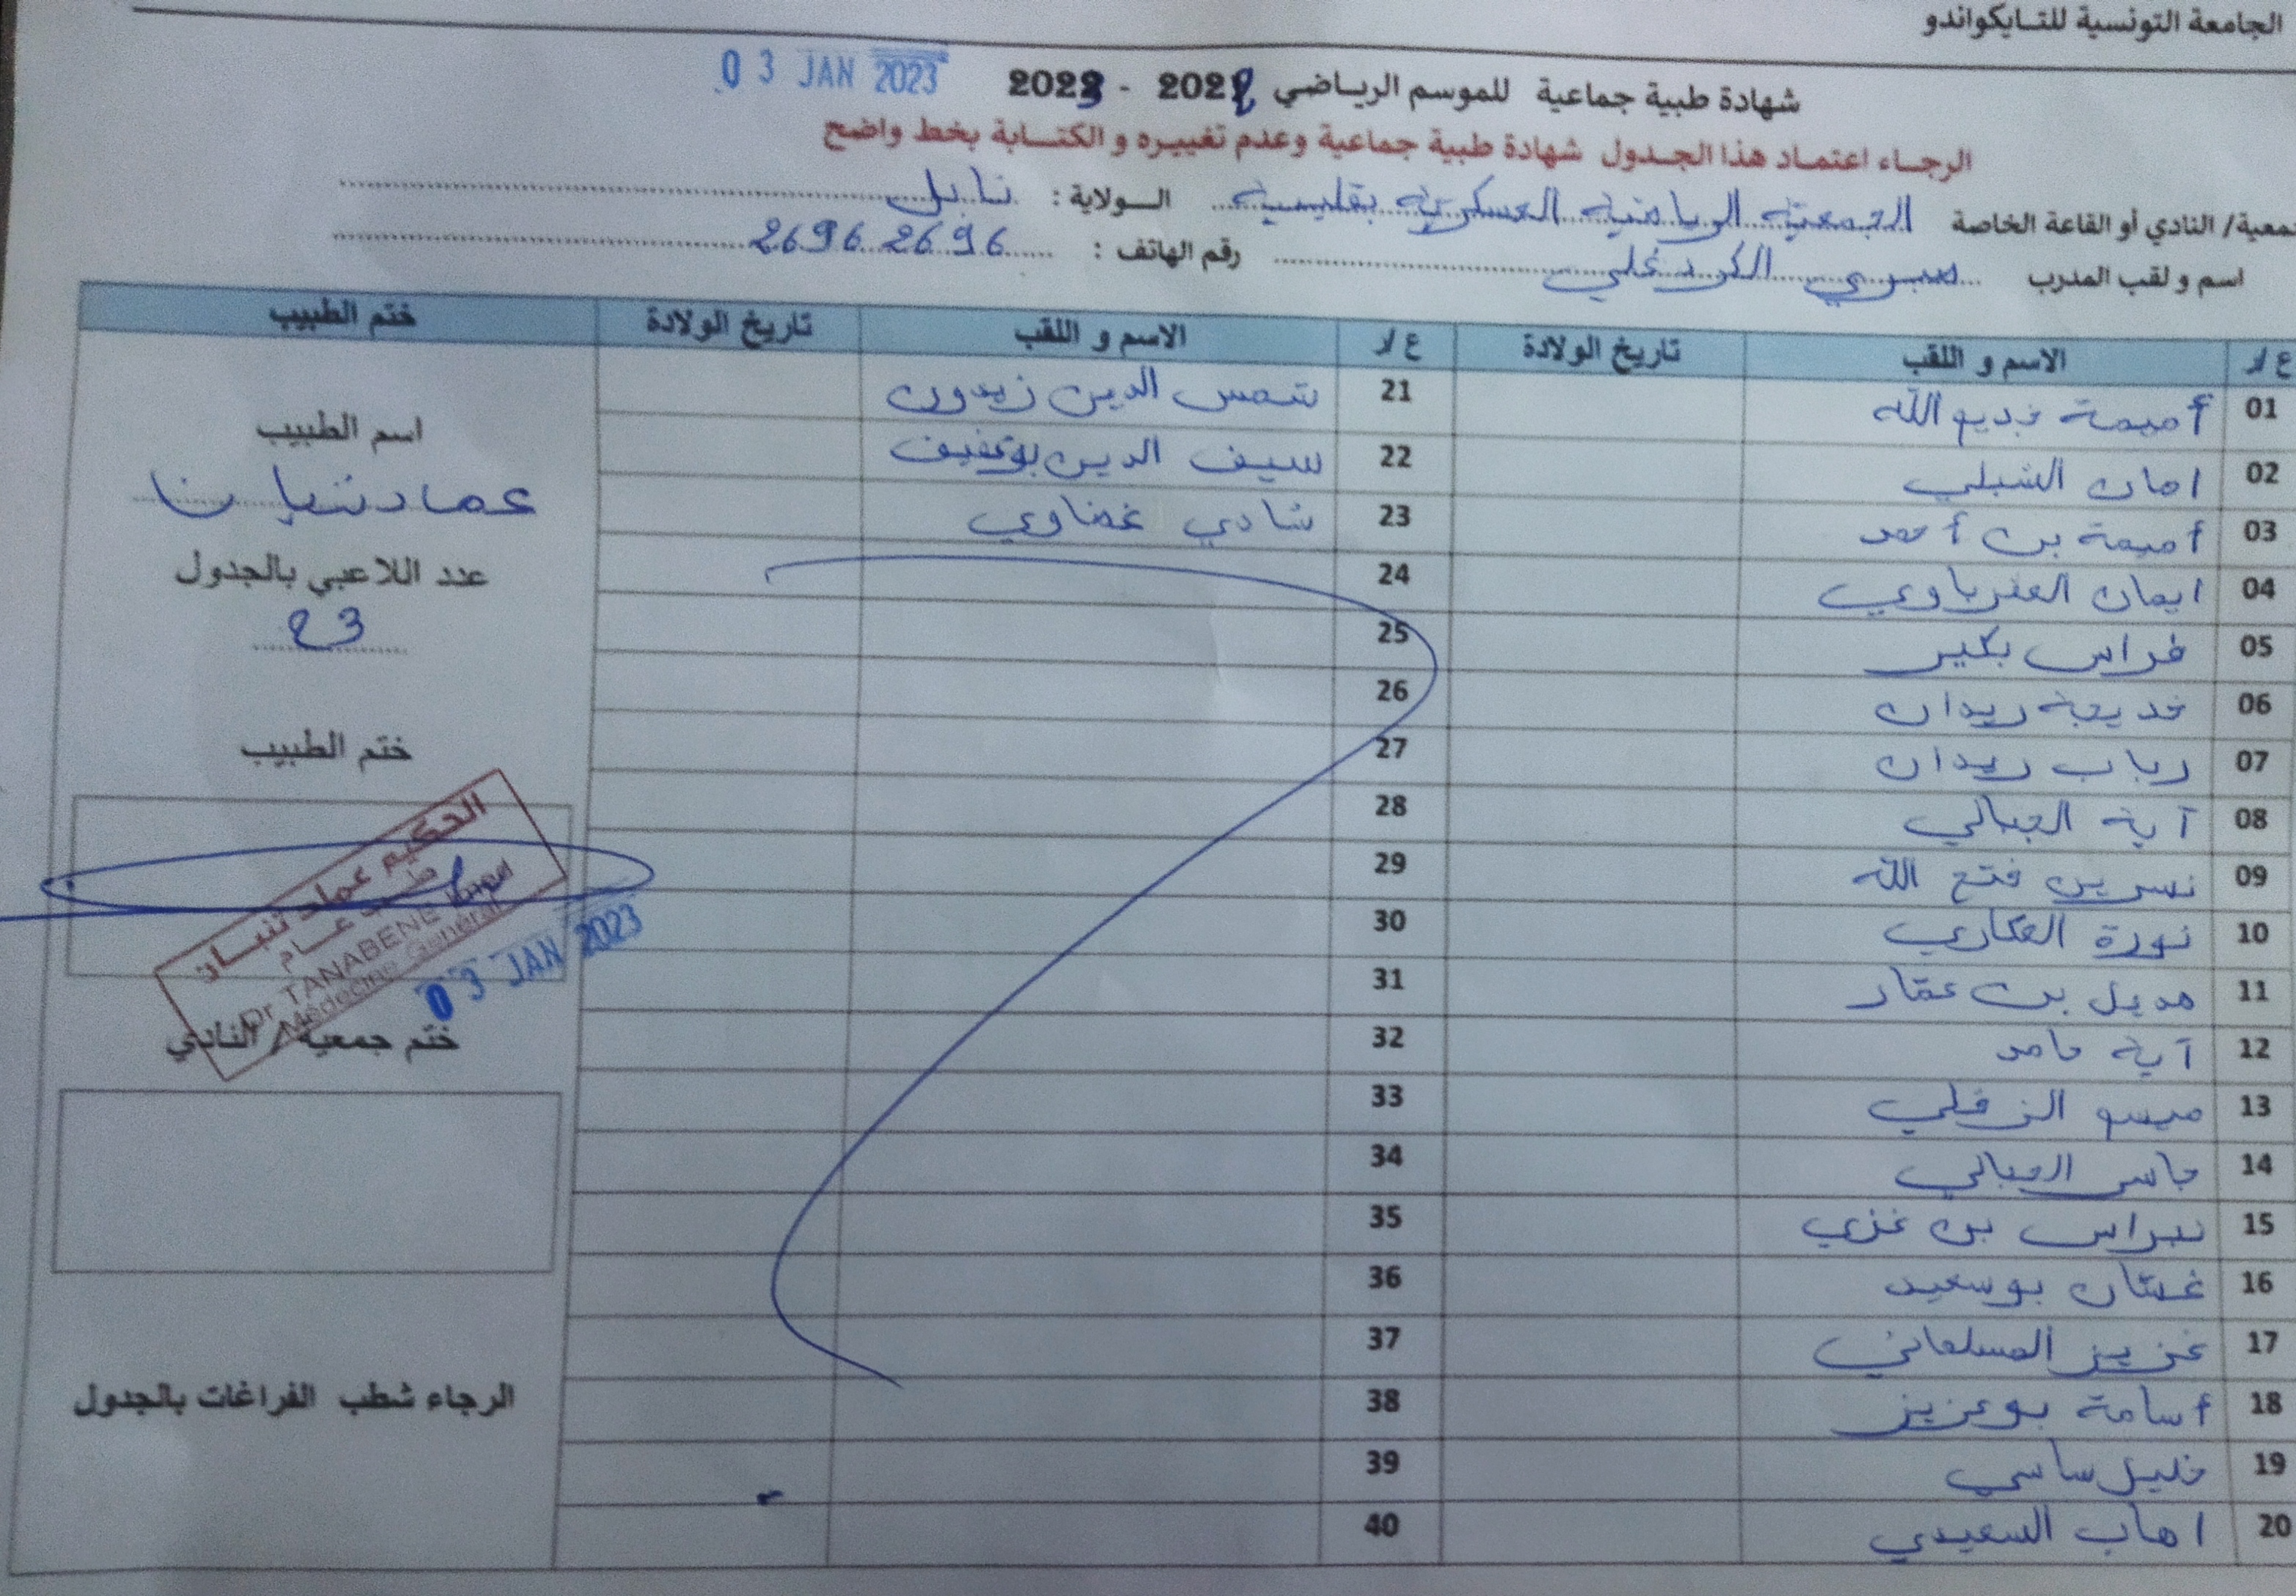 الجامعة التونسية للتايكواندو
شهادة طبية جماعية للموسم الرياضي 2022 - 2023
03 JAN 2023
الرجاء اعتماد هذا الجدول شهادة طبية جماعية وعدم تغييره و الكتابة بخط واضح
جمعية/ النادي أو القاعة الخاصة الجمعية الرياضية العسكرية بقليبية الولاية : نابل
اسم و لقب المدرب صبري الكردغلي رقم الهاتف : 2696 2696
ع/ر الاسم و اللقب تاريخ الولادة ع/ر الاسم و اللقب تاريخ الولادة ختم الطبيب
01 أميمة
02 امان الشبلي
03 أميمة بن أحمد
04 ايمان
05 فراس بكير
06 خديجة ريدان
07 رباب ريدان
08 آية الجبالي
09 نسرين فتح الله
10 نورة العكاري
11 هديل بن عمّار
12 آية حامد
13 ميسو
14 الجبالي
15 نبراس بن غزي
16 غسّان بوسعيد
17 عزيز المسلماني
18 أسامة بوعزيز
19 خليل ساسي
20 اهاب السعيدي
21 شمس الدين زيدون
22 سيف الدين
23 شادي غضاوي
24
25
26
27
28
29
30
31
32
33
34
35
36
37
38
39
40
اسم الطبيب
عماد تنبان
عدد اللاعبي بالجدول
23
ختم الطبيب
الحكيم عماد تنبان
طبيب عام
Dr TANABENE Imed
Médecine Général
03 JAN 2023
ختم جمعية / النادي
الرجاء شطب الفراغات بالجدول